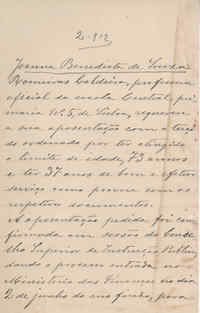 2-912
Joanna Benedicta de
Romeiras Caldeira, professora
official da escola Central pri-
maria Nº 5, de Lisboa, requereu
a sua aposentação com o terço
do ordenado por ter attingido
o limite de edade, 73 annos
e ter 37 annos de bom e efetivo
serviço como provou com os
respetivos documentos.
A aposentação pedida foi con-
firmada em sessão do Conse-
lho Superior de Instrucção Publica
dando o processo entrada no
Ministerio das Finanças no dia
2 de junho do ano findo, para